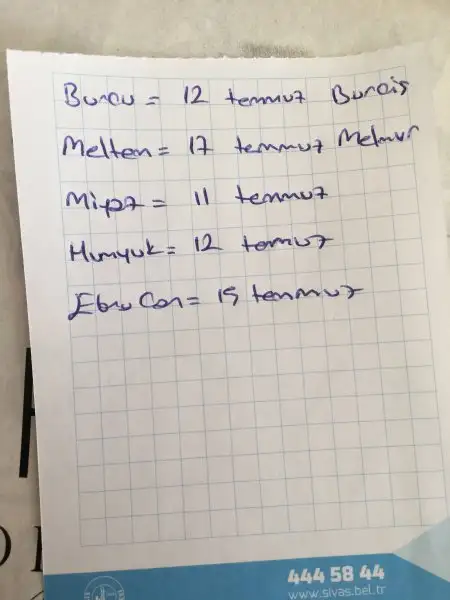 Burcu = 12 temmuz Burcis
Melten = 17 temmuz
= 11 temmuz
= 12 temuz
Ebru Can = 15 temmuz
444 58 44
www.sivas.bel.tr